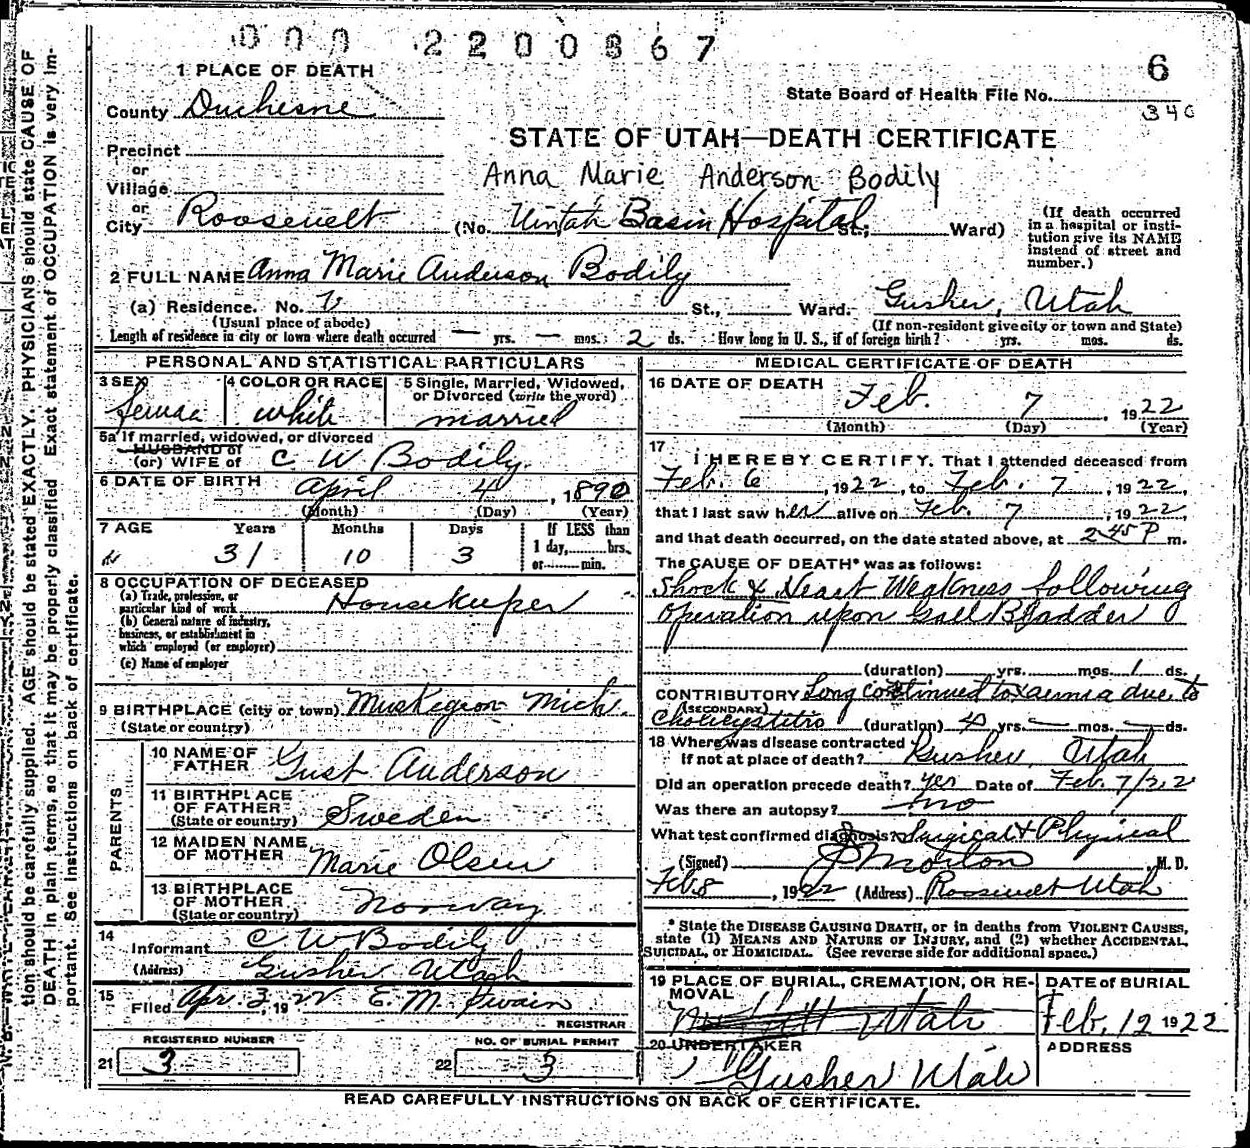 000 2200867
6
1 PLACE OF DEATH
State Board of Health File No.
340
County Duchesne
STATE OF UTAH—DEATH CERTIFICATE
Precinct
or
Village
Anna Marie Anderson Bodily
or
City Roosevelt (No. Uintah Basin Hospital St.; Ward)
(If death occurred in a hospital or institution give its NAME instead of street and number.)
2 FULL NAME Anna Marie Anderson Bodily
(a) Residence. No. St., Ward. Gusher, Utah
(Usual place of abode) (If non-resident give city or town and State)
Length of residence in city or town where death occurred — yrs. — mos. 2 ds. How long in U. S., if of foreign birth? yrs. mos. ds.
PERSONAL AND STATISTICAL PARTICULARS
3 SEX 4 COLOR OR RACE 5 Single, Married, Widowed, or Divorced (write the word)
Female white married
5a If married, widowed, or divorced
HUSBAND of
(or) WIFE of C W Bodily
6 DATE OF BIRTH April 4, 1890
(Month) (Day) (Year)
7 AGE Years Months Days If LESS than
31 10 3 1 day, hrs.
or min.
8 OCCUPATION OF DECEASED
(a) Trade, profession, or particular kind of work Housekeeper
(b) General nature of industry, business, or establishment in which employed (or employer)
(c) Name of employer
9 BIRTHPLACE (city or town) Muskegeon Mich.
(State or country)
PARENTS
10 NAME OF FATHER Gust Anderson
11 BIRTHPLACE OF FATHER Sweden
(State or country)
12 MAIDEN NAME OF MOTHER Marie Olsen
13 BIRTHPLACE OF MOTHER Norway
(State or country)
14 Informant C W Bodily
(Address) Gusher Utah
15 Filed Apr. 3, 1922 E. M. Swain
REGISTRAR
REGISTERED NUMBER NO. OF BURIAL PERMIT
21 3 22 3
MEDICAL CERTIFICATE OF DEATH
16 DATE OF DEATH Feb. 7, 1922
(Month) (Day) (Year)
17 I HEREBY CERTIFY, That I attended deceased from
Feb. 6, 1922, to Feb. 7, 1922,
that I last saw her alive on Feb. 7, 1922,
and that death occurred, on the date stated above, at 2 45 P m.
The CAUSE OF DEATH* was as follows:
Shock & Heart Weakness following
operation upon Gall Bladder
(duration) yrs. mos. 1 ds.
CONTRIBUTORY Long continued toxaemia due to
(SECONDARY)
Cholicystitis (duration) yrs. — mos. — ds.
18 Where was disease contracted
if not at place of death? Gusher, Utah
Did an operation precede death? yes Date of Feb. 7/22
Was there an autopsy? no
What test confirmed diagnosis? Surgical & Physical
(Signed) J Morton M. D.
Feb 8, 1922 (Address) Roosevelt Utah
* State the DISEASE CAUSING DEATH, or in deaths from VIOLENT CAUSES,
state (1) MEANS AND NATURE OF INJURY, and (2) whether ACCIDENTAL,
SUICIDAL, or HOMICIDAL. (See reverse side for additional space.)
19 PLACE OF BURIAL, CREMATION, OR REMOVAL DATE of BURIAL
Utah Feb. 12 1922
20 UNDERTAKER ADDRESS
Gusher Utah
READ CAREFULLY INSTRUCTIONS ON BACK OF CERTIFICATE.
tion should be carefully supplied. AGE should be stated EXACTLY. PHYSICIANS should state CAUSE OF
DEATH in plain terms, so that it may be properly classified. Exact statement of OCCUPATION is very im-
portant. See instructions on back of certificate.